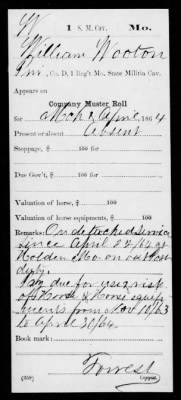 W 1 S. M. Cav. Mo.
William Wooton
Pvt., Co. D, 1 Reg't Mo. State Militia Cav.
Appears on
Company Muster Roll
for Mch & April, 1864
Present or absent Absent
Stoppage, $ 100 for
Due Gov't, $ 100 for
Valuation of horse, $ 100
Valuation of horse equipments, $ 100
Remarks: On detached service
since April 24/64 at
Holden Mo. on
duty.
Pay due for use & risk
of horse & horse equip-
ments from Nov 10/63
to April 30/64.
Book mark:
Forrest
(358) Copyist.